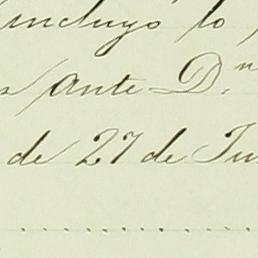 incluyo lo
ante Dn.
de 27 de Ju